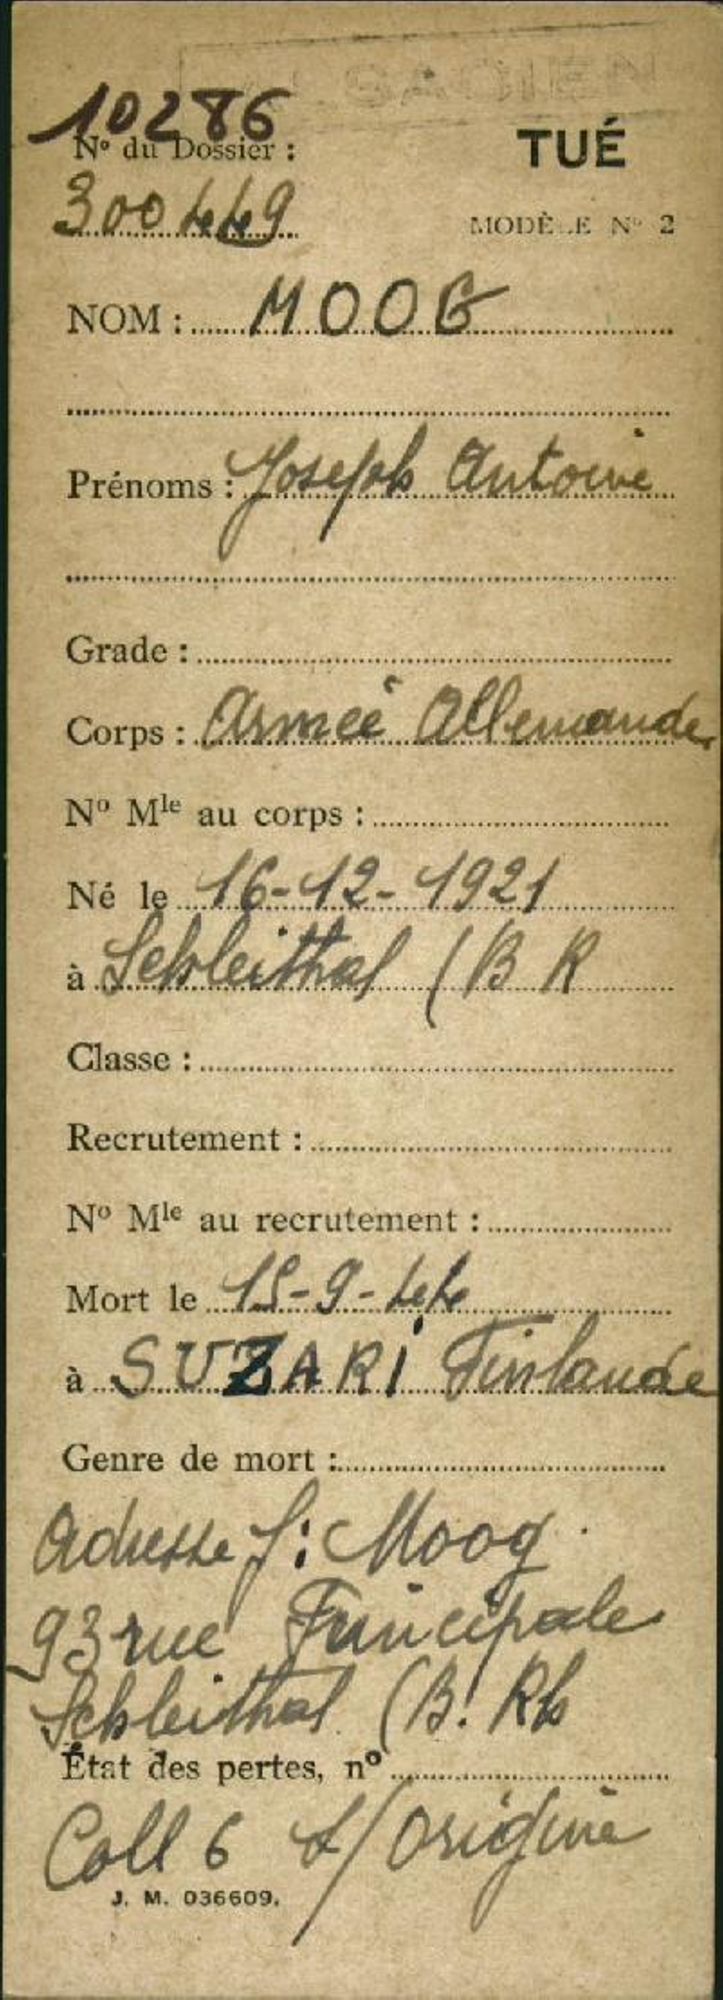 ALSACIEN
10286
N° du Dossier :
300449
TUÉ
MODÈLE N° 2
NOM : MOOG
Prénoms : Joseph Antoine
Grade :
Corps : Armée Allemande
N° Mle au corps :
Né le 16-12-1921
à Schleithal (B R
Classe :
Recrutement :
N° Mle au recrutement :
Mort le 15-9-44
à SUZARI Finlande
Genre de mort :
Adresse f: Moog
93 rue Principale
Schleithal (B. Rh
État des pertes, n°
Coll 6 s/Origine
J. M. 036609.